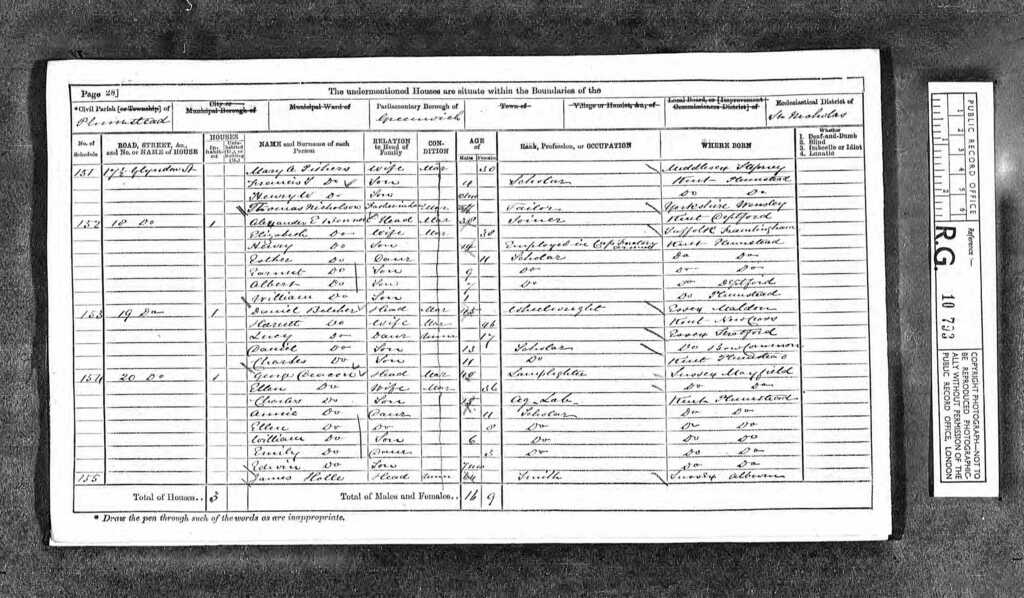 Page 28]
The undermentioned Houses are situate within the Boundaries of the
*Civil Parish [or Township] of
City or Municipal Borough of
Municipal Ward of
Parliamentary Borough of
Town of
Village or Hamlet, &c., of
Local Board, or [Improvement Commissioners District] of
Ecclesiastical District of
Plumstead
Greenwich
St Nicholas
No. of Schedule
ROAD, STREET, &c., and No. or NAME of HOUSE
HOUSES
Inhabited
Uninhabited (U.), or Building (B.)
NAME and Surname of each Person
RELATION to Head of Family
CONDITION
AGE of
Males
Females
Rank, Profession, or OCCUPATION
WHERE BORN
Whether
1. Deaf-and-Dumb
2. Blind
3. Imbecile or Idiot
4. Lunatic
151 17½ Glyndon St Mary A Wife Mar 30 Middlesex Stepney
Francis Do Son 4 Scholar Kent Plumstead
Henry W Do Son Do Do
Thomas Nicholson Mar Tailor Yorkshire
152 18 Do 1 Alexander E Head Mar 38 Joiner Kent Deptford
Elizabeth Do Wife Mar 38 Suffolk Framlingham
Henry Do Son 14 Employed in Cap Factory Kent Plumstead
Esther Do Daur 11 Scholar Do Do
Earnest Do Son 9 Do Do Do
Albert Do Son 7 Do Do Deptford
William Do Son 1 Do Plumstead
153 19 Do 1 Daniel Belcher Head Mar 45 Wheelwright Essex Maldon
Harriett Do Wife Mar 46 Kent New Cross
Lucy Do Daur Unm 17 Essex Stratford
Daniel Do Son 13 Scholar Do Bow Common
Charles Do Son 11 Do Kent Plumstead
154 20 Do 1 George Deacon Head Mar 40 Lamplighter Sussex Mayfield
Ellen Do Wife Mar 36 Do Do
Charles Do Son 15 Ag Lab Kent Plumstead
Annie Do Daur 11 Scholar Do Do
Ellen Do Do 8 Do Do Do
William Do Son 6 Do Do Do
Emily Do Daur 3 Do Do Do
Edwin Do Son 7 mo Do Do
155 James Head Unm 64 Smith Sussex
Total of Houses.. 3
Total of Males and Females.. 16 9
* Draw the pen through such of the words as are inappropriate.
PUBLIC RECORD OFFICE
1 2 3 4 5 6
Reference :-
R.G. 10 793
COPYRIGHT PHOTOGRAPH—NOT TO BE REPRODUCED PHOTOGRAPHICALLY WITHOUT PERMISSION OF THE PUBLIC RECORD OFFICE, LONDON